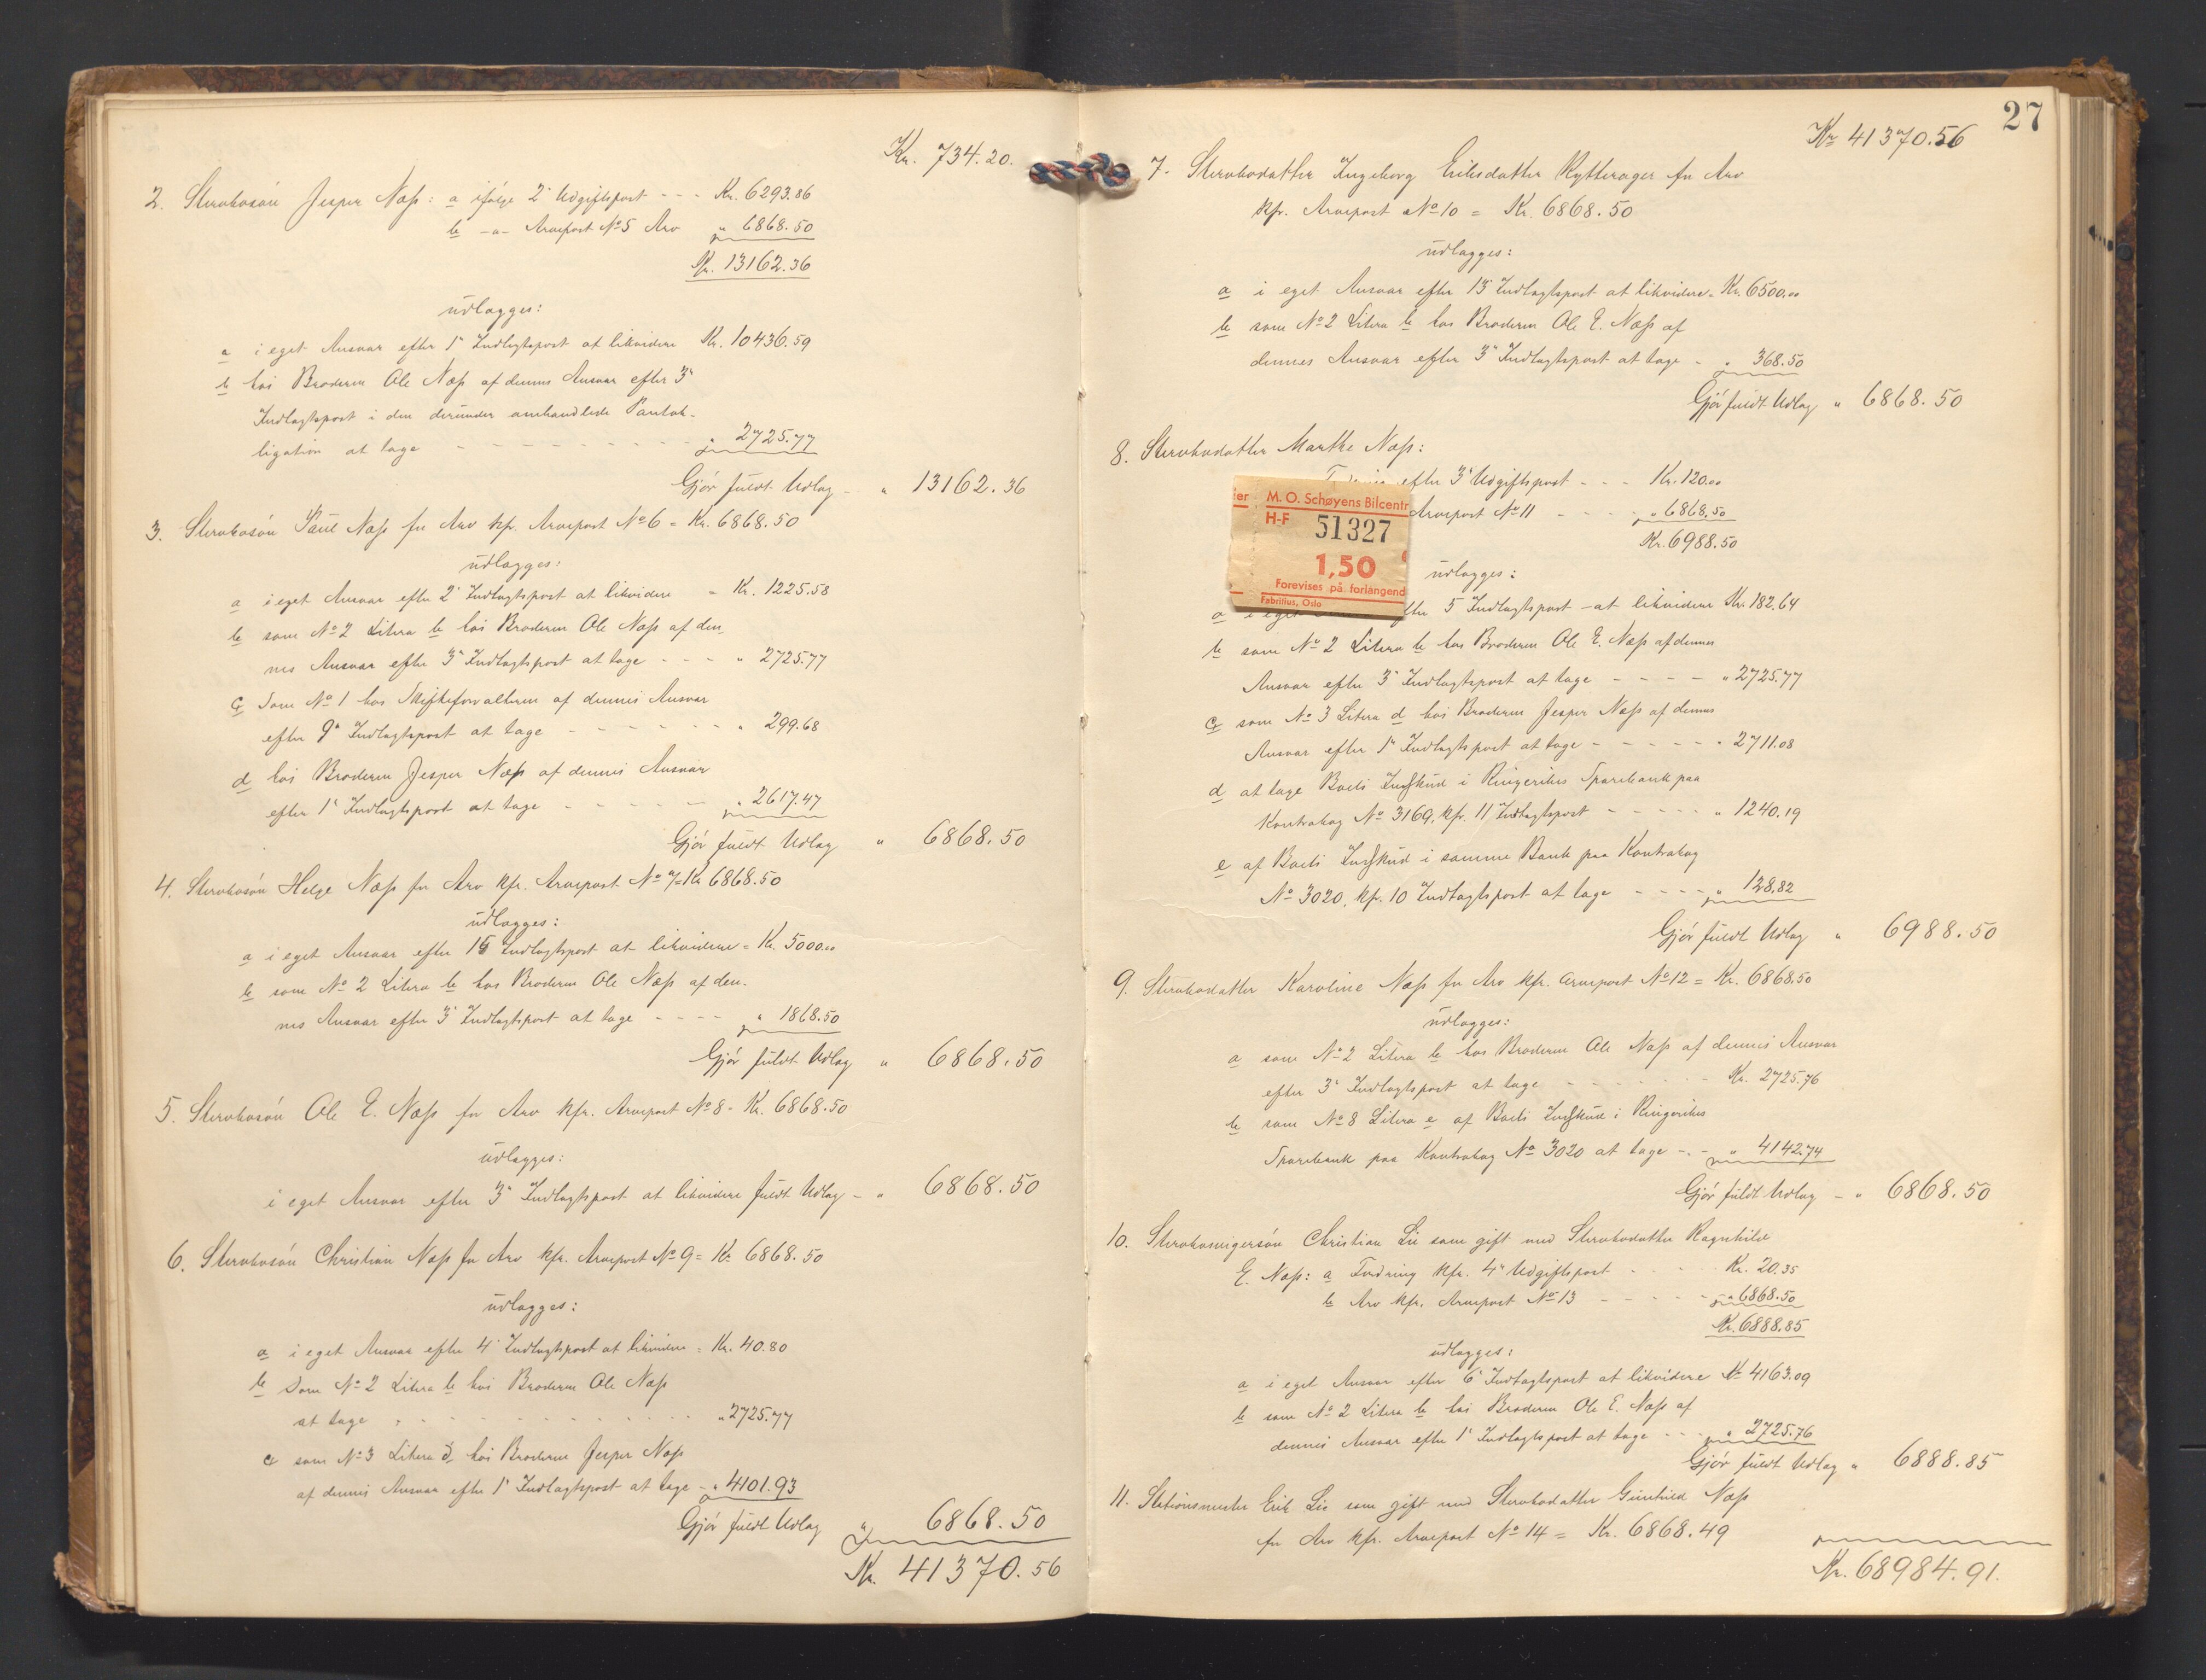 Kr. 734.20.
2. Stervbosön Jesper Næss: a ifölge 2' Udgiftspost - - - Kr. 6293.86
b -"- Arvepost No 5 Arv " 6868.50
Kr. 13162.36
udlægges:
a i eget Ansvar efter 1' Indtægtspost at likvidere Kr. 10436.59
b hos Broderen Ole Næss af dennes Ansvar efter 3'
Indtægtspost i den derunder omhandlede Pantob-
ligation at tage - - - - - - - - - " 2725.77
Gjör fuldt Udlæg - " 13162.36
3. Stervbosön Paul Næss for Arv kfr. Arvepost No 6 = Kr. 6868.50
udlægges:
a i eget Ansvar efter 2' Indtægtspost at likvidere = Kr. 1225.58
b som No 2 Litera b hos Broderen Ole Næss af den-
nes Ansvar efter 3' Indtægtspost at tage - - - - " 2725.77
c som No 1 hos Skifteforvalteren af dennes Ansvar
efter 9' Indtægtspost at tage - - - - - - " 299.68
d hos Broderen Jesper Næss af dennes Ansvar
efter 1' Indtægtspost at tage - - - - - - " 2617.47
Gjör fuldt Udlæg " 6868.50
4. Stervbosön Helge Næss for Arv kfr. Arvepost No 7 = Kr 6868.50
udlægges:
a i eget Ansvar efter 16 Indtægtspost at likvidere = Kr. 5000.00
b som No 2 Litera b hos Broderen Ole Næss af den-
nes Ansvar efter 3' Indtægtspost at tage - - - - " 1868.50
Gjör fuldt Udlæg " 6868.50
5. Stervbosön Ole E. Næss for Arv kfr. Arvepost No 8 = Kr. 6868.50
udlægges:
i eget Ansvar efter 3' Indtægtspost at likvidere fuldt Udlæg - " 6868.50
6. Stervbosön Christian Næss for Arv kfr. Arvepost No 9 = Kr 6868.50
udlægges:
a i eget Ansvar efter 4' Indtægtspost at likvidere = Kr. 40.80
b som No 2 Litera b hos Broderen Ole Næss
at tage - - - - - - - - - - " 2725.77
c som No 3 Litera d hos Broderen Jesper Næss
af dennes Ansvar efter 1' Indtægtspost at tage - " 4101.93
Gjör fuldt Udlæg " 6868.50
Kr. 41370.56
27
Kr 41370.56
7. Stervbodatter Ingeborg Eriksdatter Rytterager for Arv
kfr. Arvepost No 10 = Kr. 6868.50
udlægges:
a i eget Ansvar efter 15' Indtægtspost at likvidere = Kr. 6500.00
b som No 2 Litera b hos Broderen Ole E. Næss af
dennes Ansvar efter 3' Indtægtspost at tage - " 368.50
Gjör fuldt Udlæg " 6868.50
8. Stervbodatter Marthe Næss:
efter 3' Udgiftspost - - - Kr. 120.00
Arvepost No 11 - - - - " 6868.50
Kr. 6988.50
er M. O. Schøyens Bilcentr
H-F 51327
1,50
Forevises på forlangend
Fabritius, Oslo
udlægges:
a i eget efter 5' Indtægtspost - at likvidere Kr. 182.64
b som No 2 Litera b hos Broderen Ole E. Næss af dennes
Ansvar efter 3' Indtægtspost at tage - - - - " 2725.77
c som No 3 Litera d hos Broderen Jesper Næss af dennes
Ansvar efter 1' Indtægtspost at tage - - - - - " 2711.08
d at tage Boets Indskud i Ringerikes Sparebank paa
Kontrabog No 3169, kfr. 11' Indtægtspost - - - - - " 1240.19
e af Boets Indskud i samme Bank paa Kontrabog
No 3020, kfr. 10 Indtægtspost at tage - - - - " 128.82
Gjör fuldt Udlæg " 6988.50
9. Stervbodatter Karoline Næss for Arv kfr. Arvepost No 12 = Kr. 6868.50
udlægges:
a som No 2 Litera b hos Broderen Ole Næss af dennes Ansvar
efter 3' Indtægtspost at tage - - - - - - - Kr. 2725.76
b som No 8 Litera e af Boets Indskud i Ringerikes
Sparebank paa Kontrabog No 3020 at tage - - - " 4142.74
Gjör fuldt Udlæg - " 6868.50
10. Stervbosvigersön Christian Lie som gift med Stervbodatter Ragnhild
E. Næss: a Fordring kfr. 4' Udgiftspost - - - - Kr. 20.35
b Arv kfr. Arvepost No 13 - - - - - " 6868.50
Kr. 6888.85
udlægges:
a i eget Ansvar efter 6' Indtægtspost at likvidere Kr 4163.09
b som No 2 Litera b hos Broderen Ole E. Næss af
dennes Ansvar efter 1' Indtægtspost at tage - - - " 2725.76
Gjör fuldt Udlæg " 6888.85
11. Stationsmester Erik Lie som gift med Stervbodatter Gunhild Næss
for Arv kfr. Arvepost No 14 = Kr. 6868.49
Kr. 68984.91.